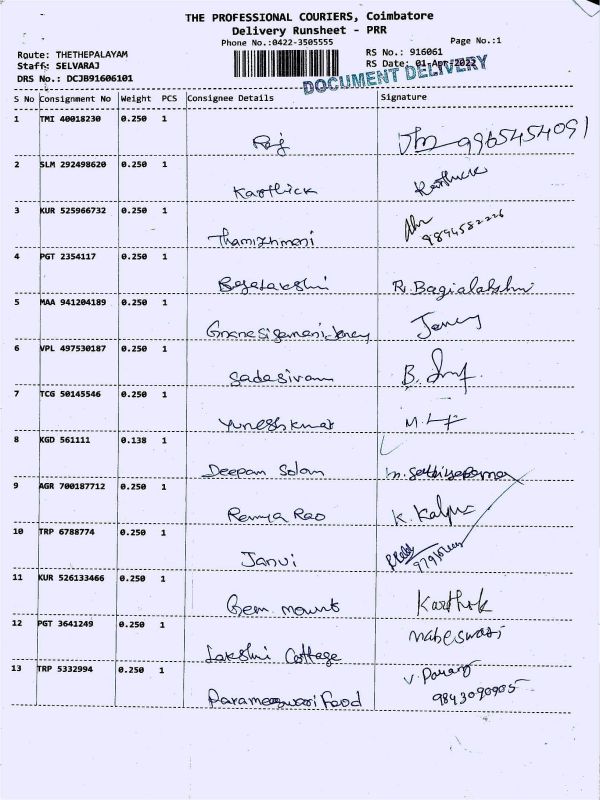 THE PROFESSIONAL COURIERS, Coimbatore
Delivery Runsheet - PRR
Phone No.:0422-3505555
Page No.:1
Route: THETHEPALAYAM
RS No.: 916061
Staff: SELVARAJ
RS Date: 01-Apr-2022
DRS No.: DCJB91606101
DOCUMENT DELIVERY
S No Consignment No Weight PCS Consignee Details Signature
1 TMI 40018230 0.250 1
Raj 9965454091
2 SLM 292498620 0.250 1
Karthick Karthick
3 KUR 525966732 0.250 1
Thamizhmani 9894582226
4 PGT 2354117 0.250 1
R. Bagialakshmi
5 MAA 941204189 0.250 1
Gnanesigamani Jency Jency
6 VPL 497530187 0.250 1
Sadasivam B.
7 TCG 50145546 0.250 1
Yuneshkumar M.
8 KGD 561111 0.138 1
Deepam Solam
9 AGR 700187712 0.250 1
Remya Rao K. Kalpa
10 TRP 6788774 0.250 1
Janvi
11 KUR 526133466 0.250 1
Gem mount Karthik
12 PGT 3641249 0.250 1
Lakshmi Cottage maheswari
13 TRP 5332994 0.250 1
Parameswari Food V. 9843090905